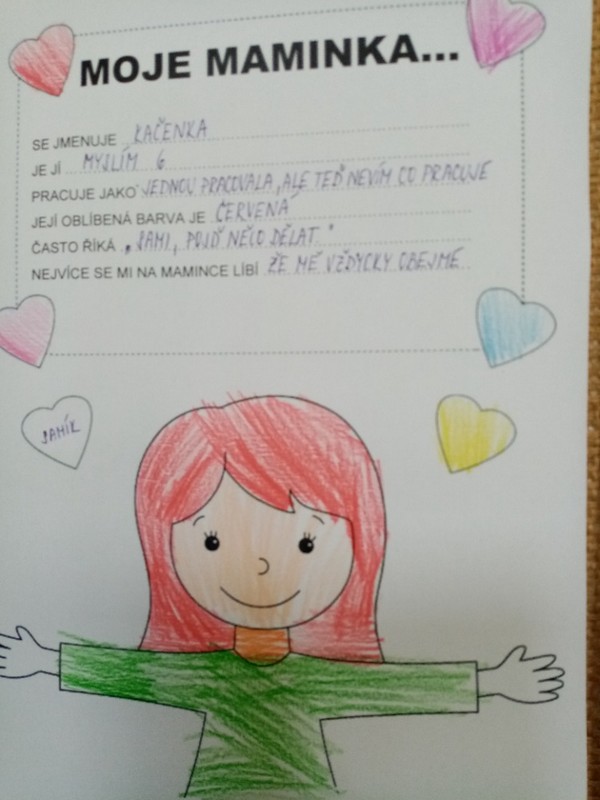 MOJE MAMINKA...
SE JMENUJE KAČENKA
JE JÍ MYSLÍM 6
PRACUJE JAKO JEDNOU PRACOVALA, ALE TEĎ NEVÍM CO PRACUJE
JEJÍ OBLÍBENÁ BARVA JE ČERVENÁ
ČASTO ŘÍKÁ „SAMI, POJĎ NĚCO DĚLAT."
NEJVÍCE SE MI NA MAMINCE LÍBÍ ŽE MĚ VŽDYCKY OBEJME
SAMÍK